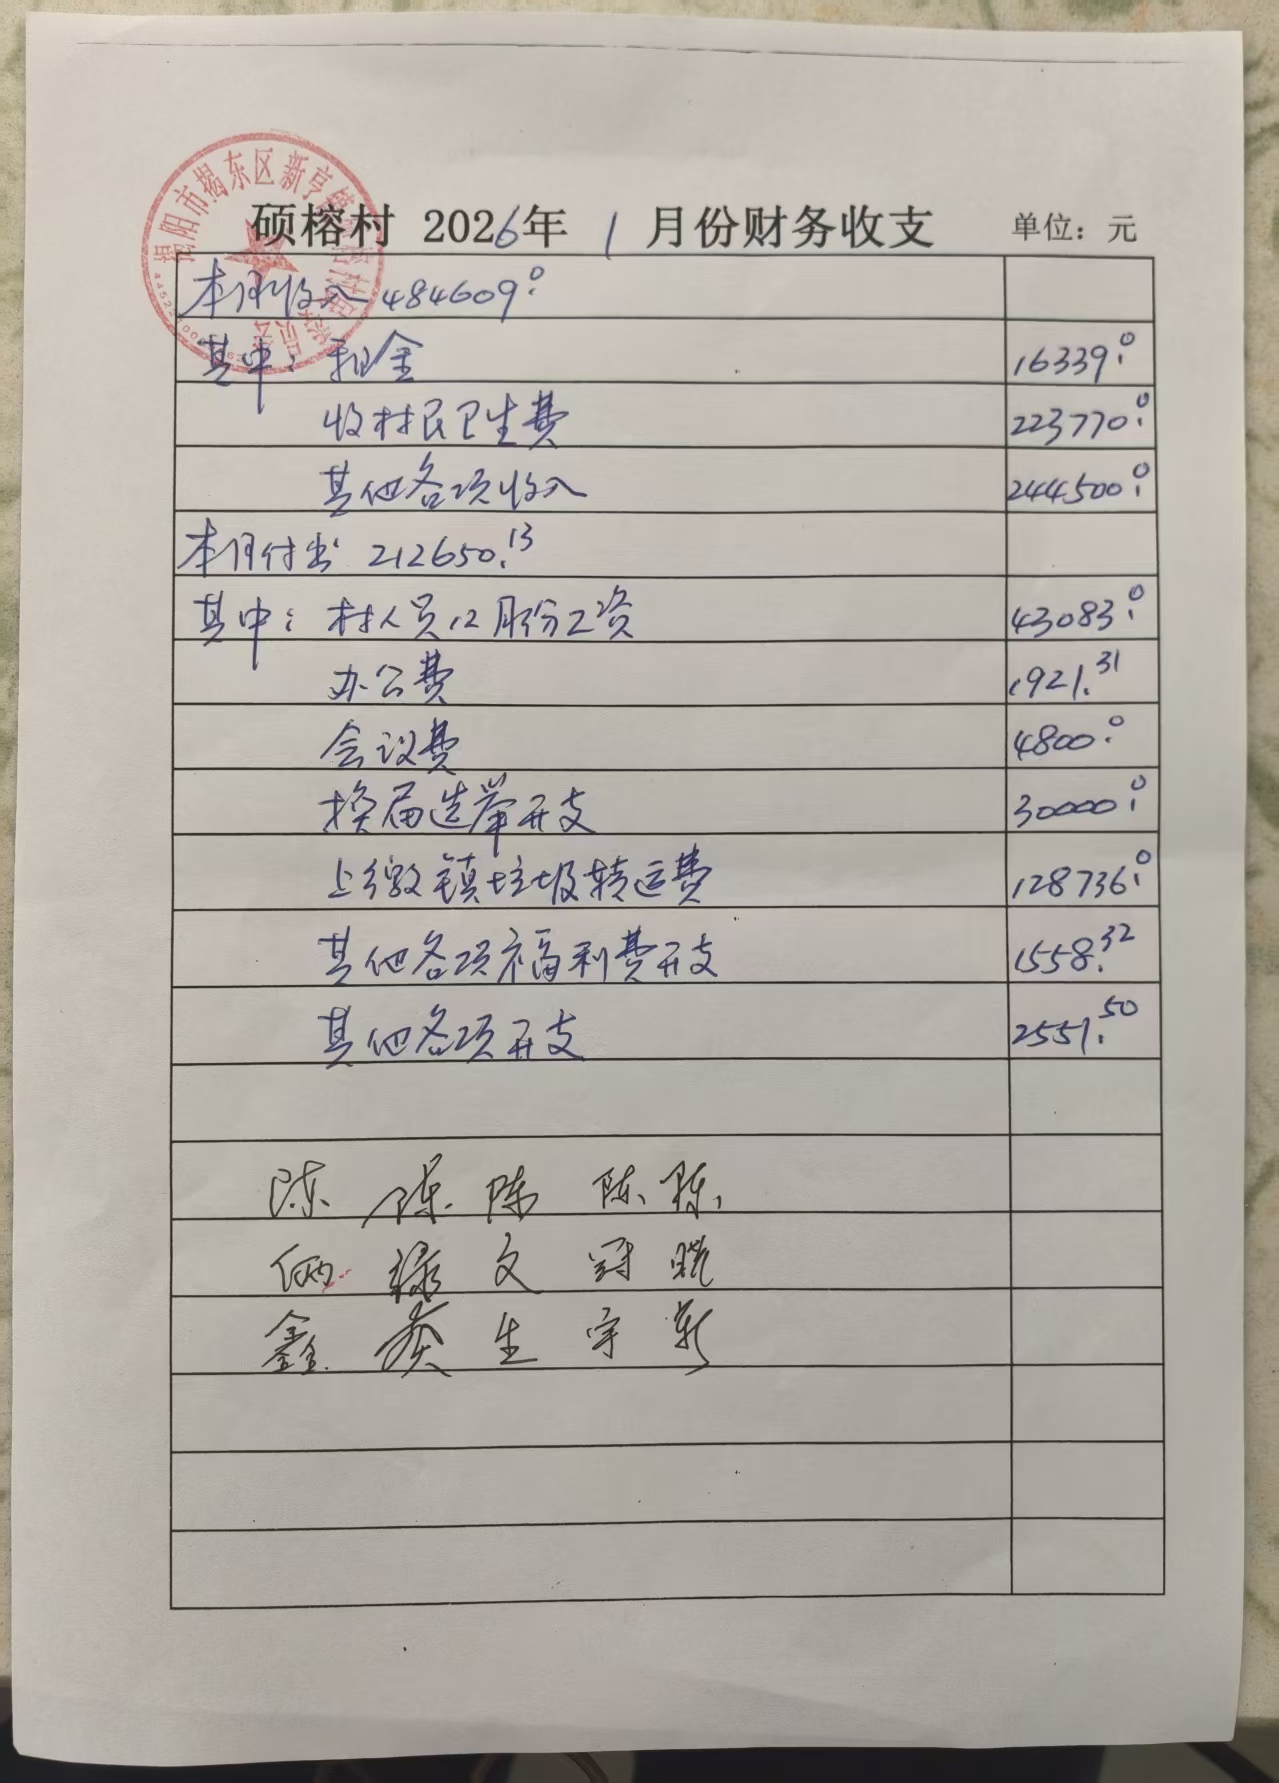 硕榕村 2026年 1 月份财务收支 单位：元
本月收入 484609.0
其中：租金 16339.0
收村民卫生费 223770.0
其他各项收入 244500.0
本月付出 212650.13
其中：村人员12月份工资 43083.0
办公费 1921.31
会议费 4800.0
换届选举开支 30000.0
上缴镇垃圾转运费 128736.0
其他各项福利费开支 1558.32
其他各项开支 2551.50
陈 陈 陈 陈 陈
文 冠 晓
鑫 生 宇
揭阳市揭东区新亨镇硕榕村